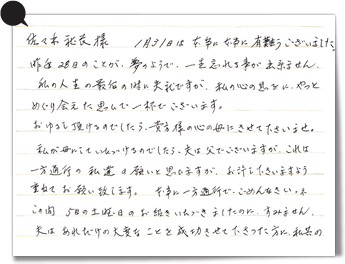 佐々木社長様　1月31日は本当に本当に有難うございました。
昨年28日のことが、夢のようで、一生忘れる事が出来ません。
私の人生の最后の時に失礼ですが、私の心の息子に、やっと
めぐり会えた思いで一杯でございます。
おゆるし頂けるのでしたら、貴方様の心の母にさせて下さいませ。
私が母にしていただけるのでしたら、夫は父でございますが、これは
一方通行の私達の願いと思いますが、お許し下さいますよう
重ねてお願い致します。本当に一方通行で、ごめんなさい。
この間5日の土曜日のお約きいただきましたのに、すみません。
夫はあれだけの大変なことを成功させて下さった方に、私共の